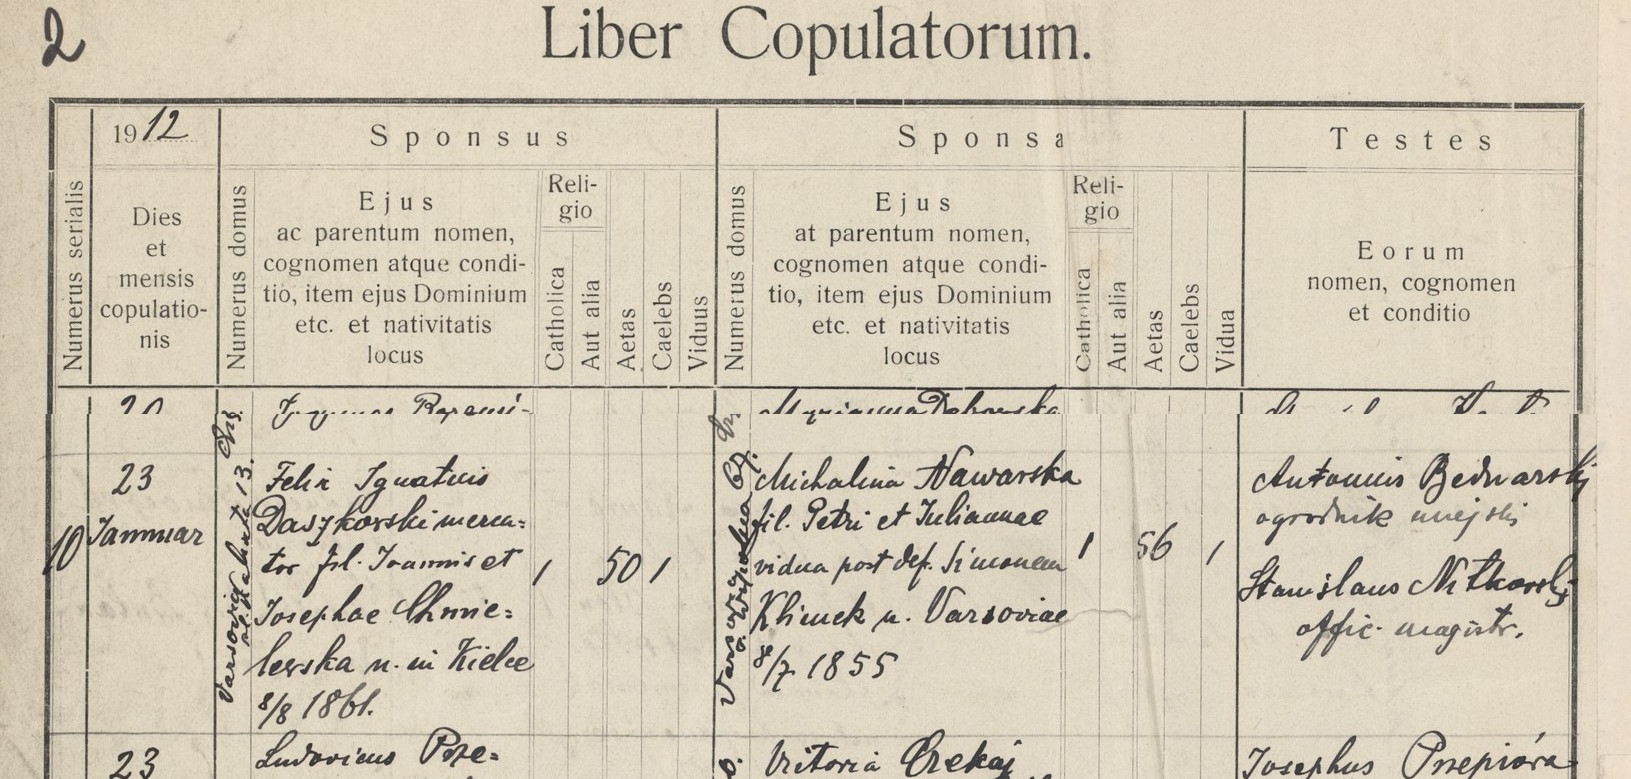 2
Liber Copulatorum.
1912
Sponsus
Sponsa
Testes
Numerus serialis
Dies
et
mensis
copulatio-
nis
Numerus domus
Ejus
ac parentum nomen,
cognomen atque condi-
tio, item ejus Dominium
etc. et nativitatis
locus
Reli-
gio
Catholica
Aut alia
Aetas
Caelebs
Viduus
Numerus domus
Ejus
at parentum nomen,
cognomen atque condi-
tio, item ejus Dominium
etc. et nativitatis
locus
Reli-
gio
Catholica
Aut alia
Aetas
Caelebs
Vidua
Eorum
nomen, cognomen
et conditio
20
10
23
Januar
Varsovia
13.
Felix Ignatius
Daszkowski merca=
tor fil. Joannis et
Josephae Chmie=
lewska n. in Kielce
8/8 1861.
1
50
1
Varsovia
Michalina Nawarska
fil. Petri et Juliannae
vidua post def. Simonem
Klimek n. Varsoviae
8/7 1855
1
56
1
Antonius Bednarski
ogrodnik miejski
Stanislaus Nitkowski
offic. magistr.
23
Ludovicus Prze=
Victoria
Josephus Przepióra